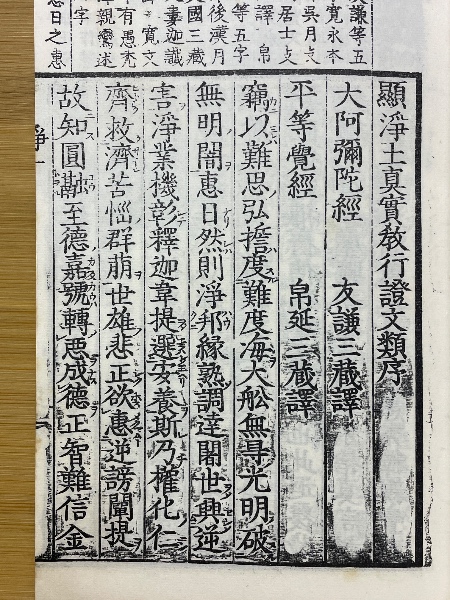 謙等五
寬永本
吳月支
居士支
譯 帛
等五字
後漢月
國三藏
婁迦讖
寬文
有愚禿
親鸞述
字
惠日之惠
顯淨土真實敎行證文類序
大阿彌陀經 友謙三藏譯
平等覺經 帛延三藏譯
竊以難思弘擔度難度海大舩無㝵光明破
無明闇惠日然則淨邦緣熟調達闍世興逆
害淨業機彰釋迦韋提選安養斯乃權化仁
齊救濟苦惱群萠世雄悲正欲惠逆謗闡提
故知圓融至德嘉號轉悪成德正智難信金